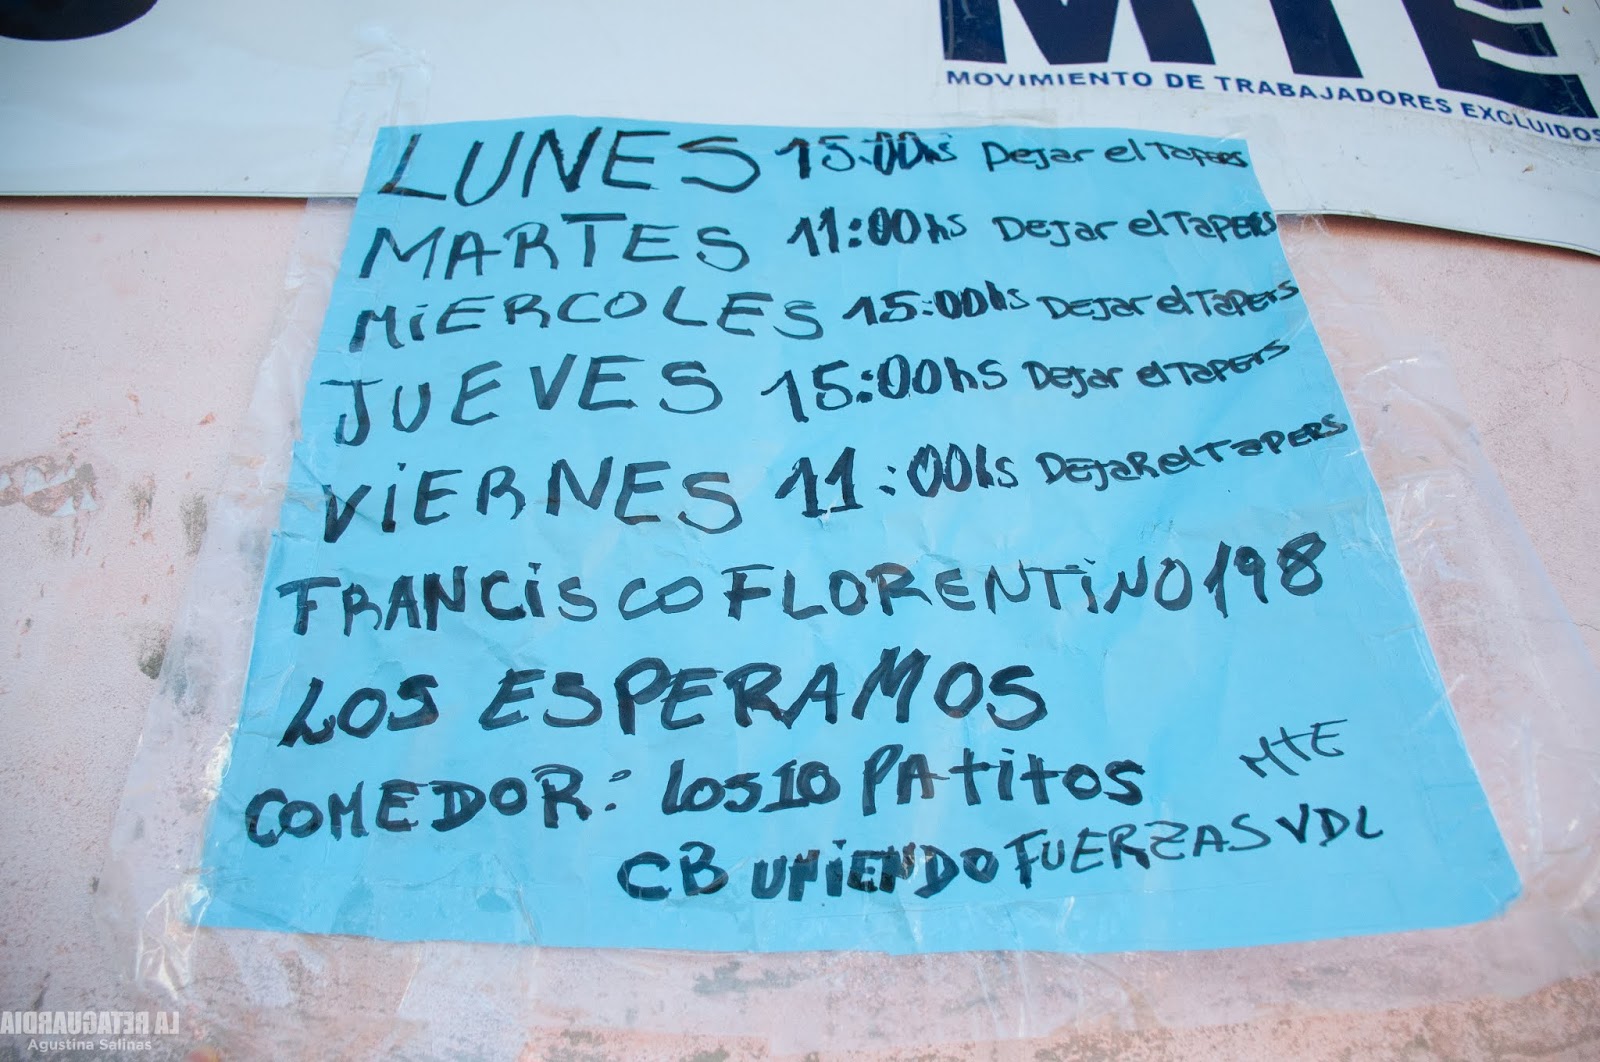 MTE
MOVIMIENTO DE TRABAJADORES EXCLUIDOS
LUNES 15:00hs Dejar el Tapers
MARTES 11:00hs Dejar el Tapers
MiERCOLES 15:00hs Dejar el Tapers
JUEVES 15:00hs Dejar el Tapers
ViERNES 11:00hs Dejar el Tapers
FRANCisco FLORENTiNO 198
LOS ESPERAMOS
COMEDOR: Los 10 PAtitos MTE
CB UNiENDO FUERZAS VDL
LA RETAGUARDIA
Agustina Salinas